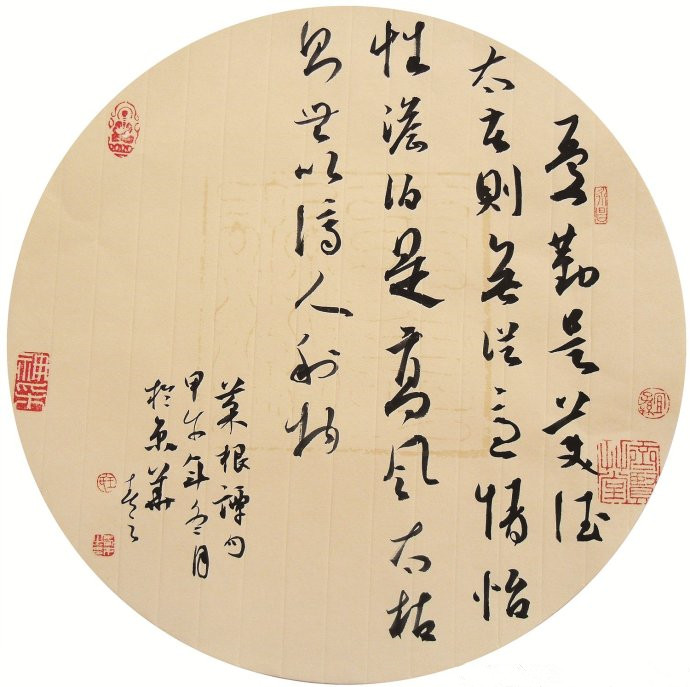 憂勤是美德
太苦則無從適情怡
性澹泊是高風太枯
則無以濟人利物
菜根譚句
甲午年冬月
於京華